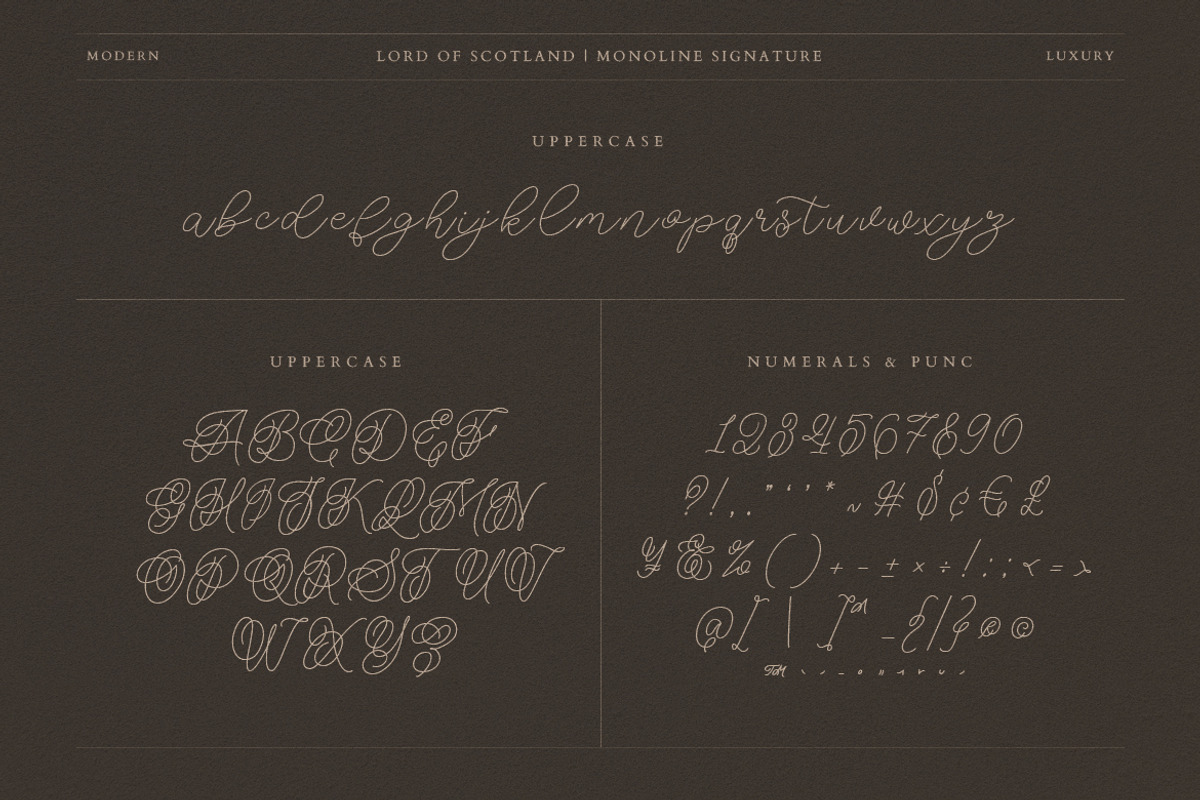 MODERN
LORD OF SCOTLAND | MONOLINE SIGNATURE
LUXURY
UPPERCASE
abcdefghijklmnopqrstuvwxyz
UPPERCASE
ABCDEF
GHIJKLMN
OPQRSTUV
WXYZ
NUMERALS & PUNC
1234567890
?!,. " ‘ ’ * ~ # $ ¢ € £
¥ & % ( ) + − ± × ÷ / : ; < = >
@ [ | ] _ { / } ® ©
™